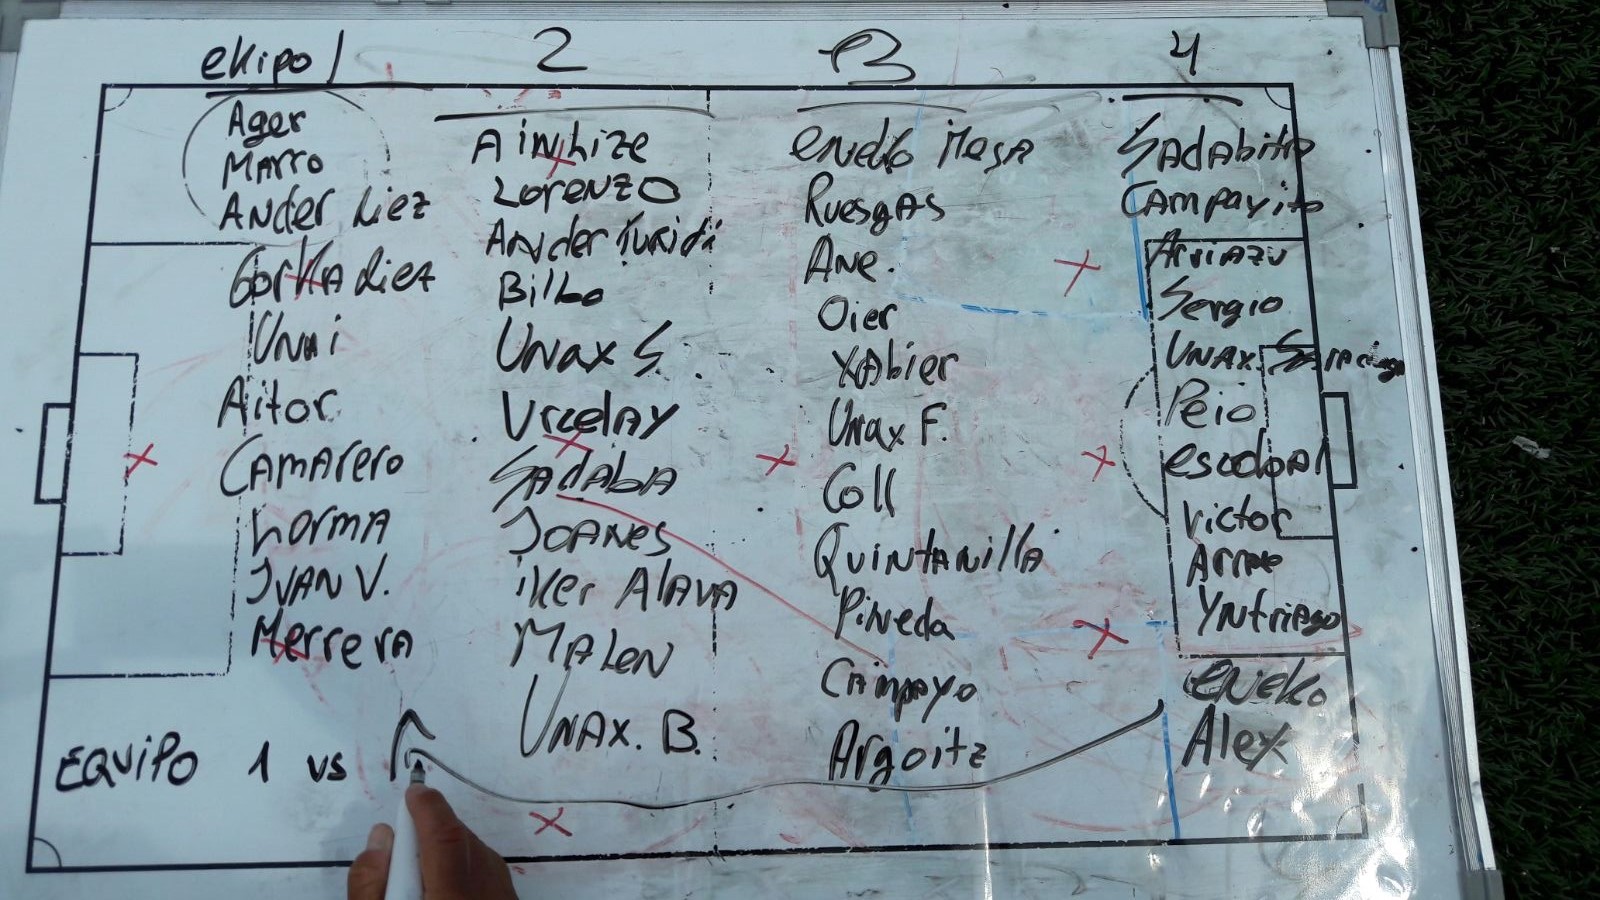 ekipo 1
Ager
Marro
Ander Liez
Gorka diez
Unai
Aitor
Camarero
Lorma
Ivan V.
Herrera
EQUIPO 1 vs
2
Ainhize
Lorenzo
Ander
Bilbo
Unax S
Urcelay
Sadaba
Joanes
iker Alava
Malen
Unax. B.
3
eneko Mesa
Ruesgas
Ane.
Oier
Xabier
Unax F.
Coll
Quintanilla
Pineda
Campayo
Argoitz
4
Sadabito
Campayito
Arriazu
Sergio
Unax
Peio
escobar
Victor
Yntriago
eneko
Alex